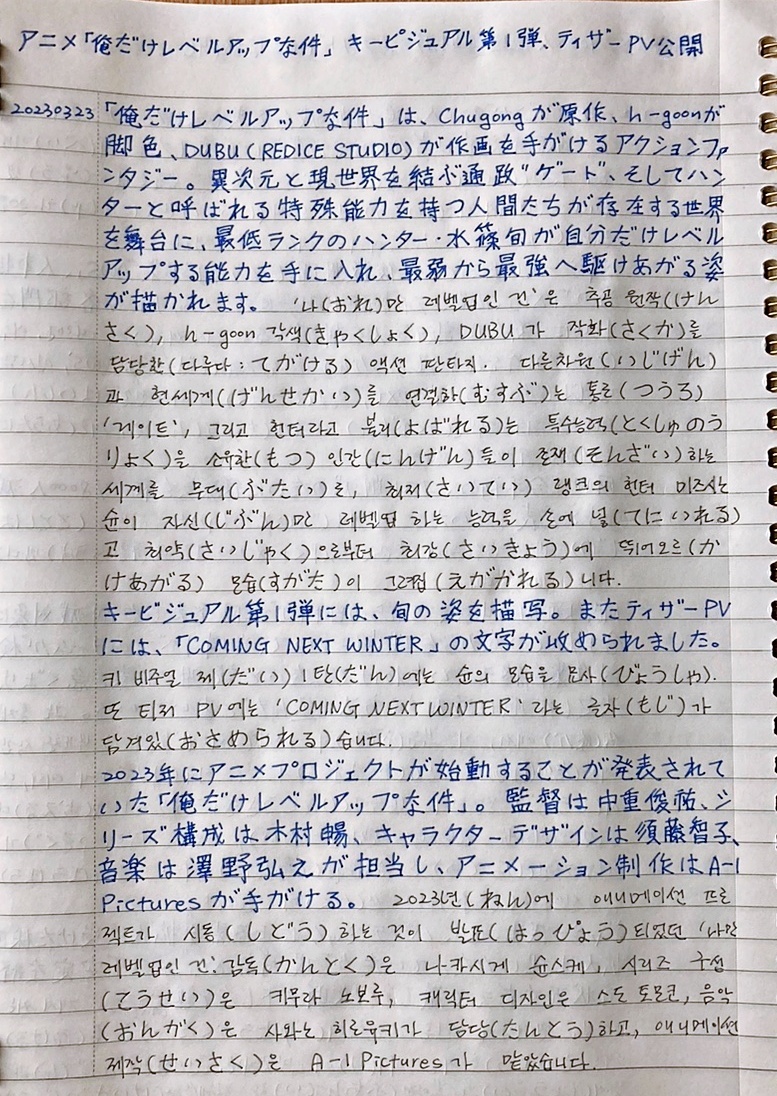 アニメ「俺だけレベルアップな件」キービジュアル第1弾、ティザーPV公開
20230323「俺だけレベルアップな件」は、Chugongが原作、h-goonが
脚色、DUBU(REDICE STUDIO)が作画を手がけるアクションファ
ンタジー。異次元と現世界を結ぶ通路"ゲート"、そしてハン
ターと呼ばれる特殊能力を持つ人間たちが存在する世界
を舞台に、最低ランクのハンター・水篠旬が自分だけレベル
アップする能力を手に入れ、最弱から最強へ駆けあがる姿
が描かれます。 '나(おれ)만 레벨업인 건'은 추공 원작(げん
さく), h-goon 각색(きゃくしょく), DUBU가 작화(さくが)를
담당한(다루다:てがける) 액션 판타지. 다른차원(いじげん)
과 현세계(げんせかい)를 연결하(むすぶ)는 통로(つうろ)
'게이트', 그리고 헌터라고 불리(よばれる)는 특수능력(とくしゅのう
りょく)을 소유한(もつ) 인간(にんげん)들이 존재(そんざい)하는
세계를 무대(ぶたい)로, 최저(さいてい) 랭크의 헌터 미즈시노
슌이 자신(じぶん)만 레벨업 하는 능력을 손에 넣(てにいれる)
고 최약(さいじゃく)으로부터 최강(さいきょう)에 뛰어오르(か
けあがる) 모습(すがた)이 그려집(えがかれる)니다.
キービジュアル第1弾には、旬の姿を描写。またティザーPV
には、「COMING NEXT WINTER」の文字が収められました。
키 비주얼 제(だい) 1탄(だん)에는 슌의 모습을 묘사(びょうしゃ).
또 티저 PV에는 'COMING NEXT WINTER'라는 글자(もじ)가
담겨있(おさめられる)습니다.
2023年にアニメプロジェクトが始動することが発表されて
いた「俺だけレベルアップな件」。監督は中重俊祐、シ
リーズ構成は木村暢、キャラクターデザインは須藤智子、
音楽は澤野弘之が担当し、アニメーション制作はA-1
Picturesが手がける。 2023년(ねん)에 애니메이션 프로
젝트가 시동(しどう)하는 것이 발표(はっぴょう)되었던 '나만
레벨업인 건'. 감독(かんとく)은 나카시게 슌스케, 시리즈 구성
(こうせい)은 키무라 노보루, 캐릭터 디자인은 스도 토모코, 음악
(おんがく)은 사와노 히로유키가 담당(たんとう)하고, 애니메이션
제작(せいさく)은 A-1 Pictures가 맡았습니다.